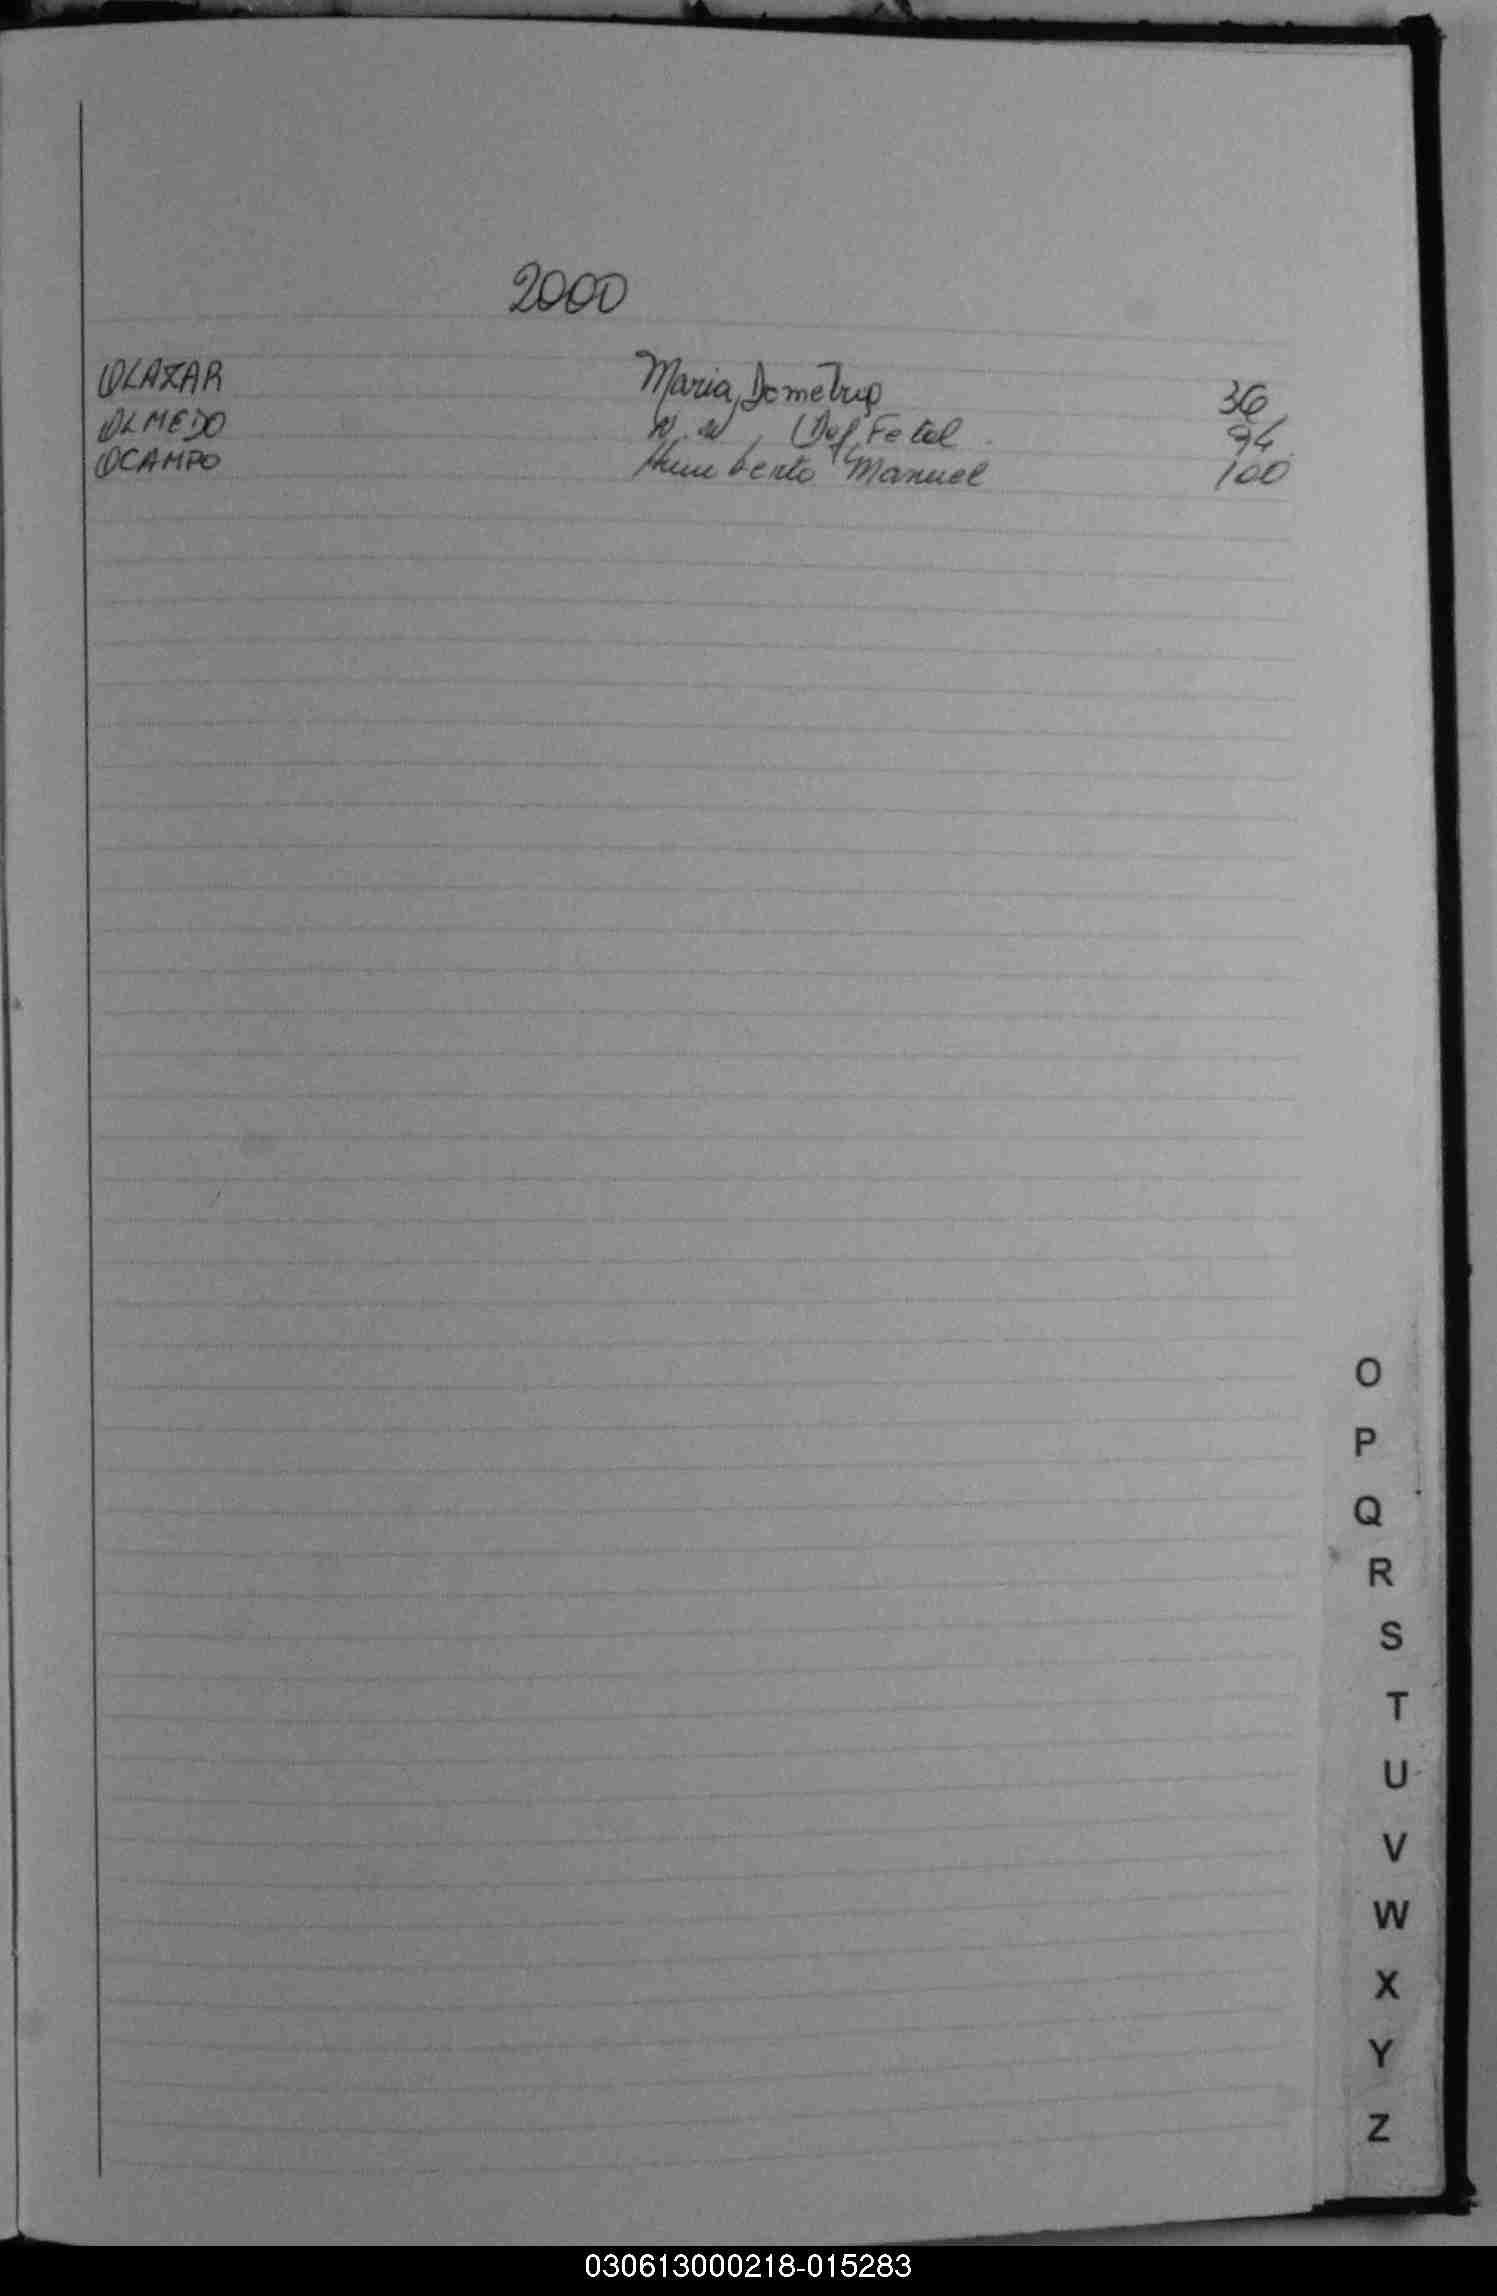 2000
OLAZAR Maria, Dometrup 36
OLMEDO N.N, (Def. Fetal 94
OCAMPO Humberto Manuel 100
O
P
Q
R
S
T
U
V
W
X
Y
Z
030613000218-015283